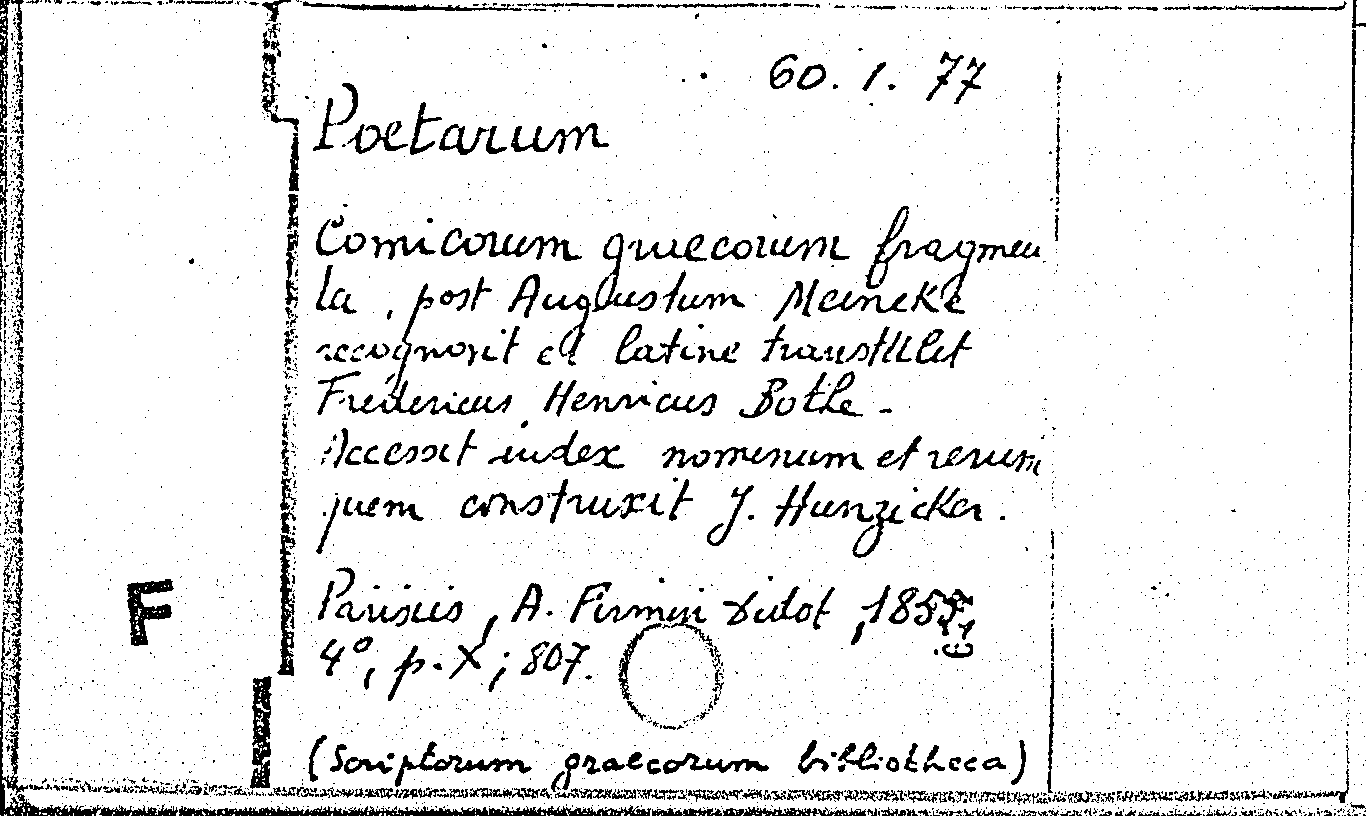 60. 1. 77
Poetarum
Comicorum graecorum fragmen
ta, post Augustum Meineke
recognovit et latine transtulit
Fredericus Henricus Bothe -
Accessit index nominum et rerum
quem construxit J. Hunzicker.
Parisiis, A. Firmin Didot, 1855
F
4°, p. X; 807.
(Scriptorum graecorum bibliotheca)